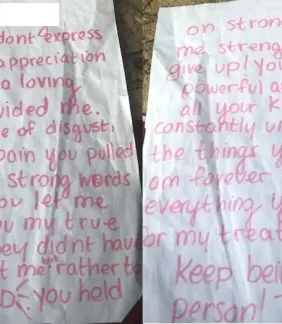 dont express
appreciation
a loving
vided me.
e of disgust,
pain you pulled
strong words
ou let me
ou my true
ey didnt have
t me but rather to
D you held
on stron
me streng
give up! you
powerful a
all your k
constantly u
the things y
am forever
everything y
or my treat
Keep bei
person!